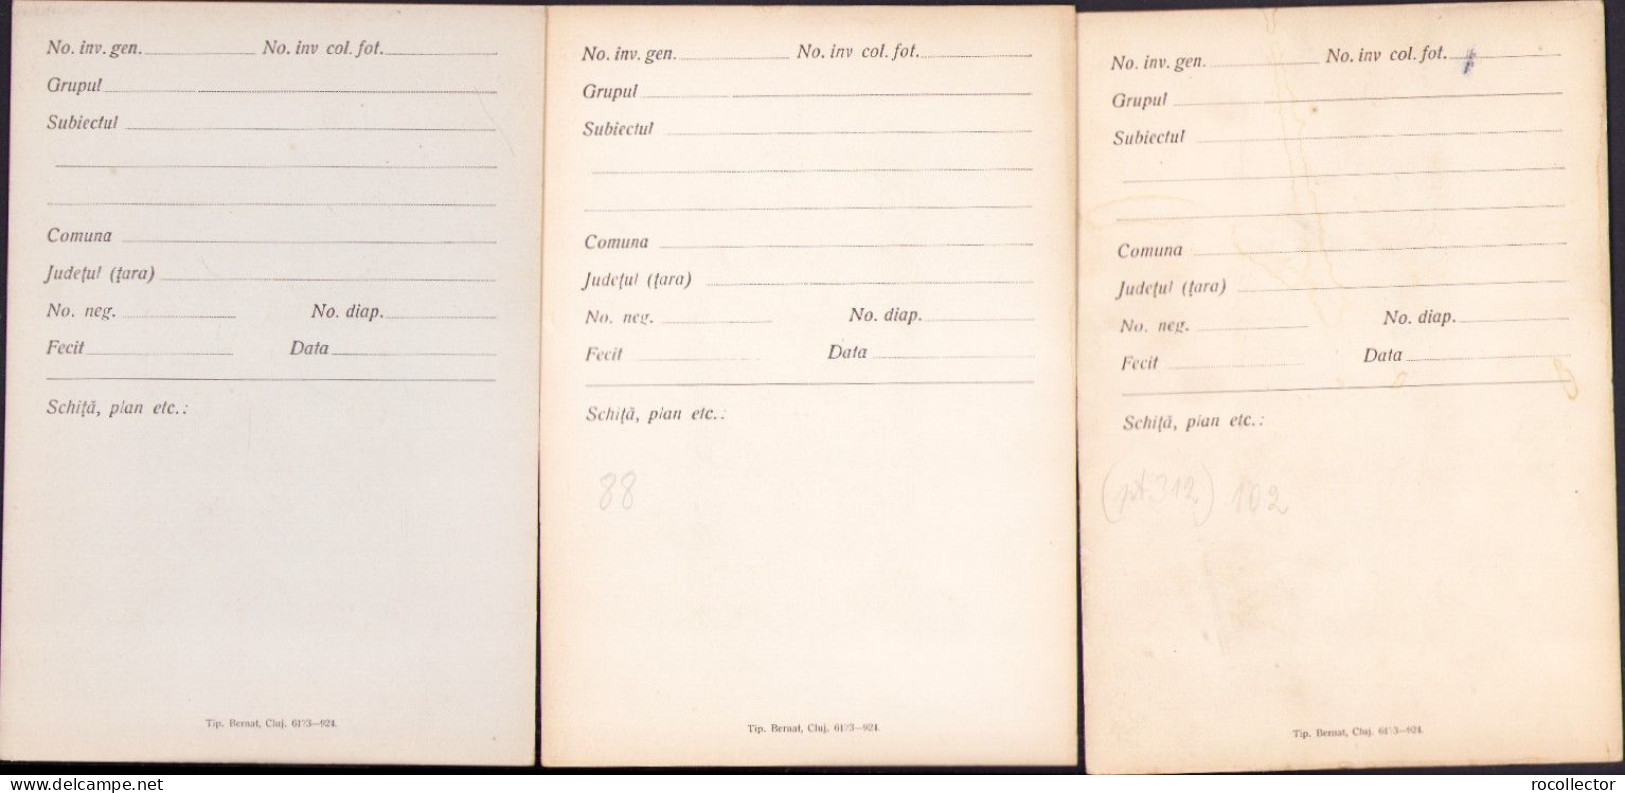 No. inv. gen. No. inv col. fot.
Grupul
Subiectul
Comuna
Județul (țara)
No. neg. No. diap.
Fecit Data
Schiță, plan etc.:
Tip. Bernat, Cluj.
No. inv. gen. No. inv col. fot.
Grupul
Subiectul
Comuna
Județul (țara)
No. neg. No. diap.
Fecit Data
Schiță, plan etc.:
88
Tip. Bernat, Cluj.
No. inv. gen. No. inv col. fot.
Grupul
Subiectul
Comuna
Județul (țara)
No. neg. No. diap.
Fecit Data
Schiță, plan etc.:
102
Tip. Bernat, Cluj.
delcampe.net
rocollector